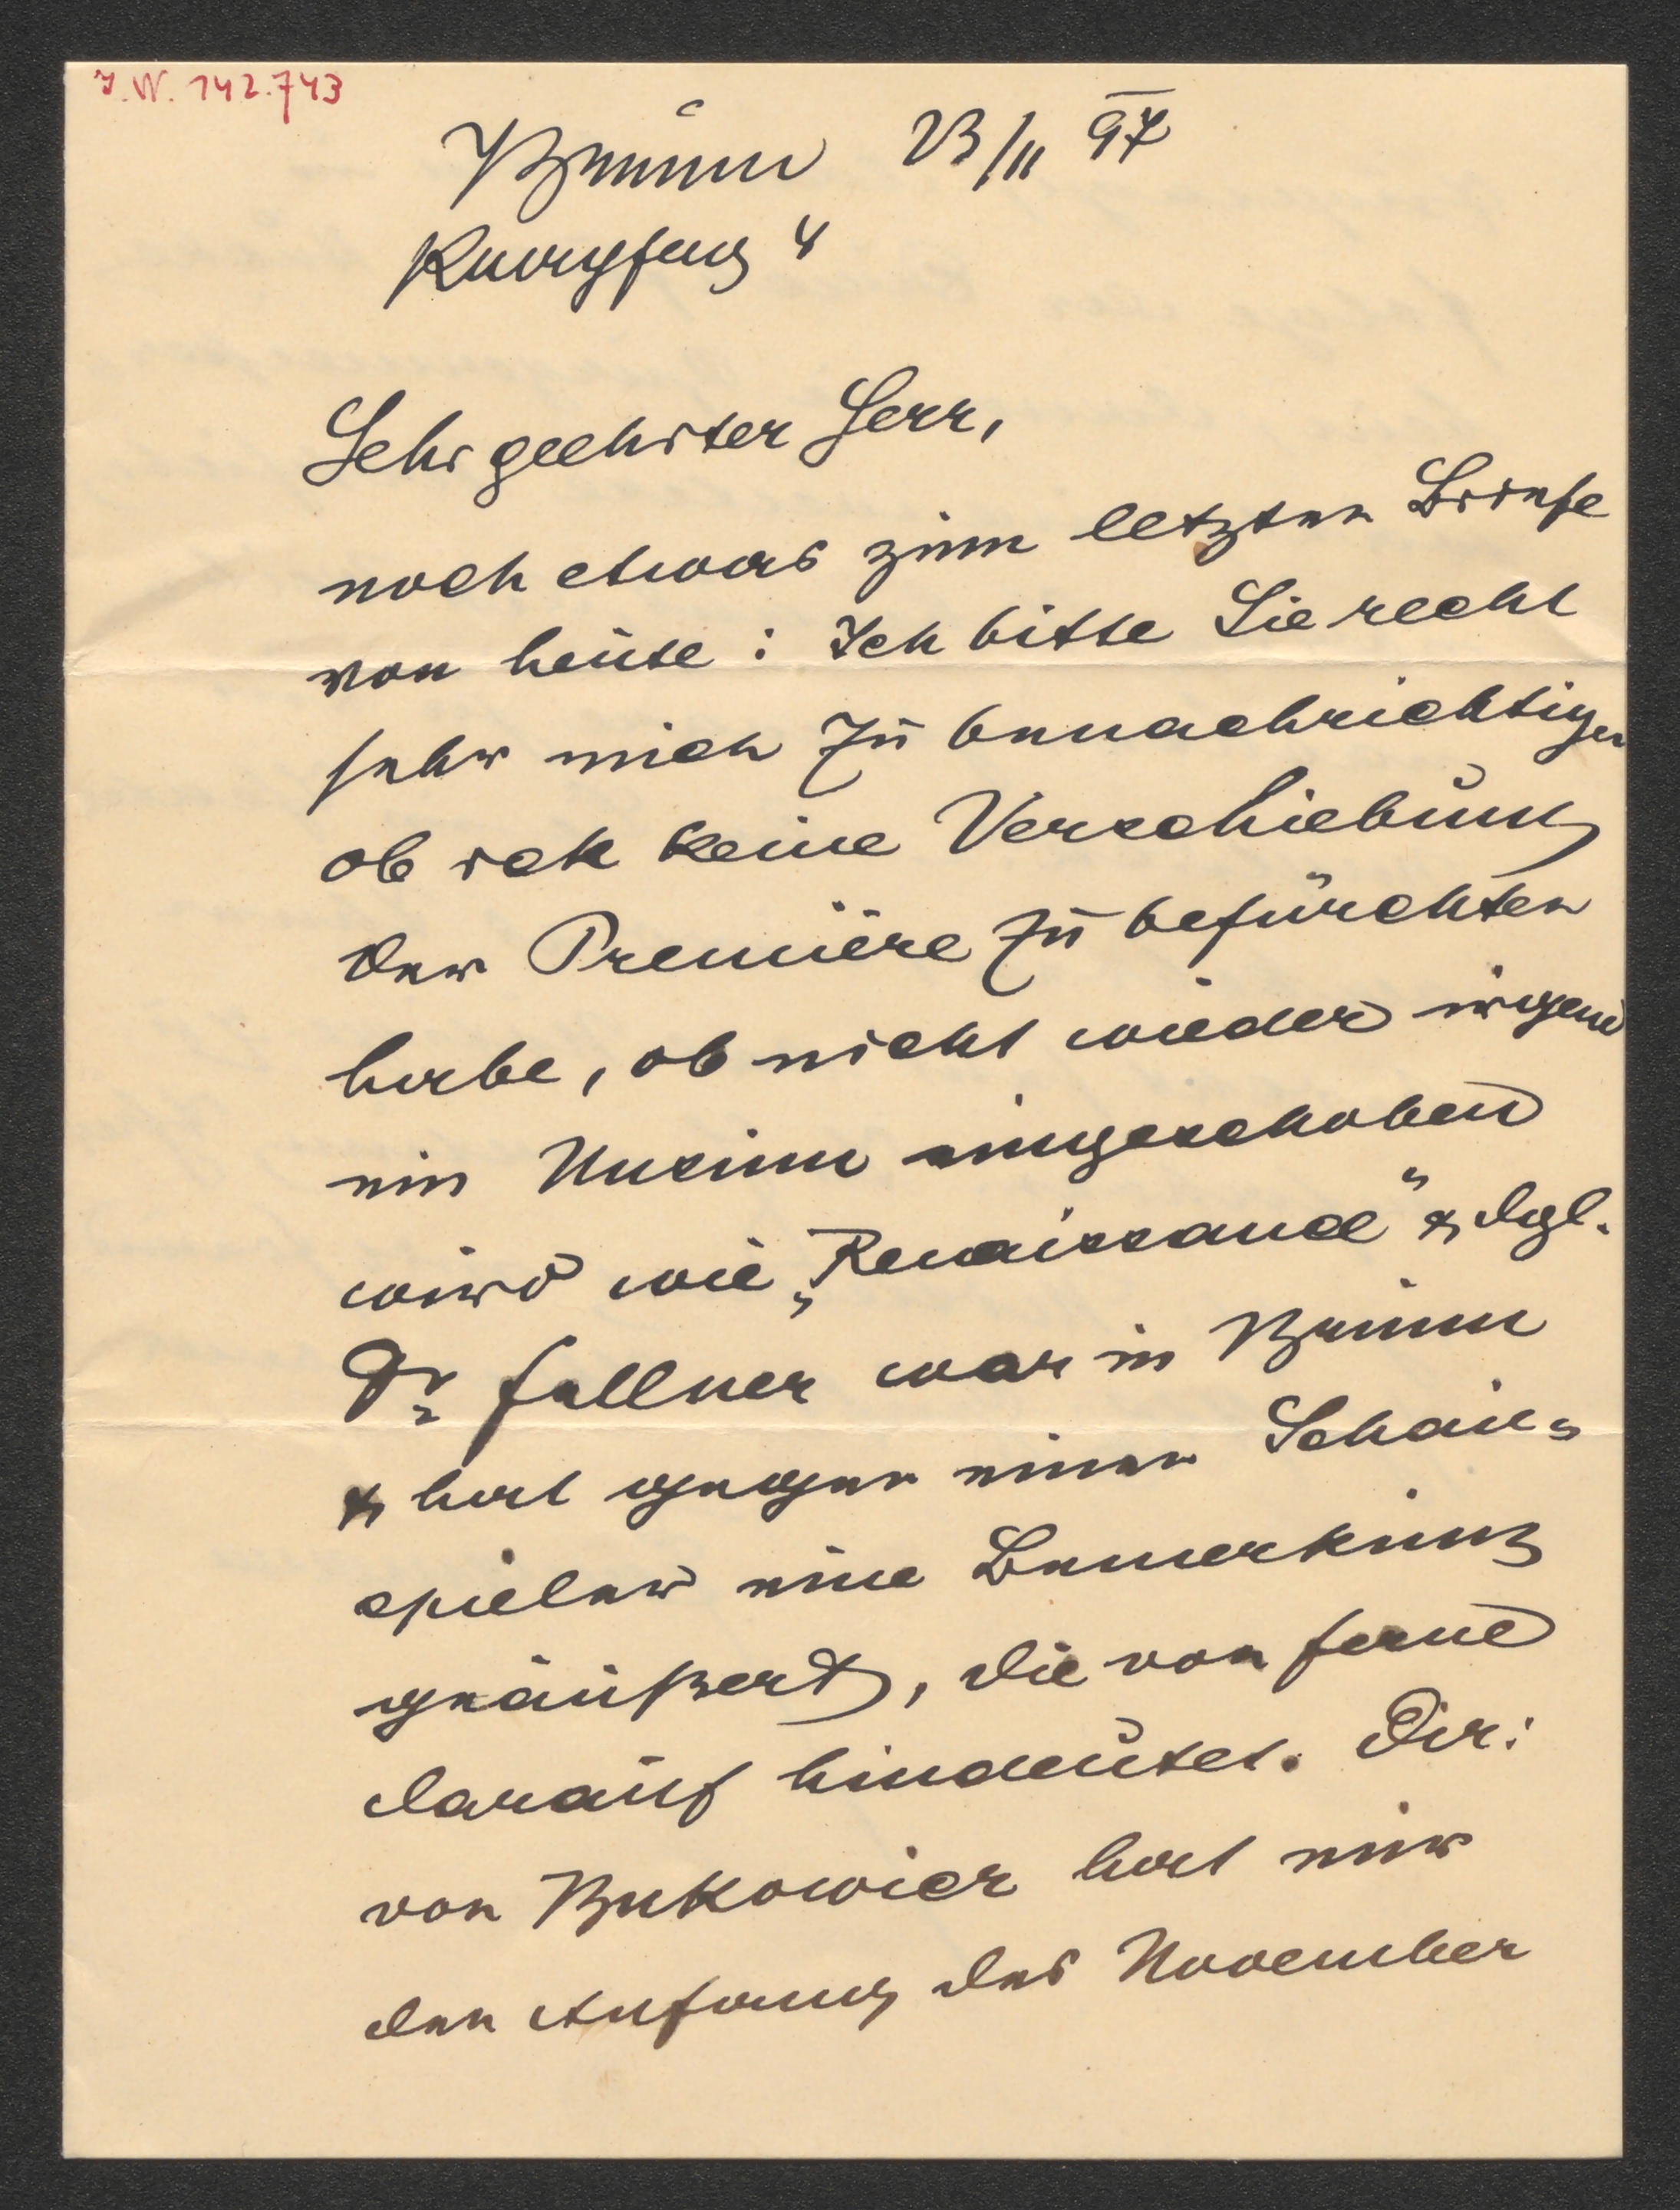 J.N. 142.743
Brünn 23/II 97
4
Sehr geehrter Herr,
noch etwas zum letzten Briefe
von heute: Ich bitte Sie recht
sehr mich zu benachrichtigen
ob ich keine Verschiebung
der Première zu befürchten
habe, ob nicht wieder irgend
ein Unsinn eingeschoben
wird wie „Renaissance“ & dgl.
Dr Fellner war in Brünn
& hat gegen einen Schau-
spieler eine Bemerkung
geäußert, die von ferne
darauf hindeutet. Dir:
von Bukowics hat mir
den Anfang des November